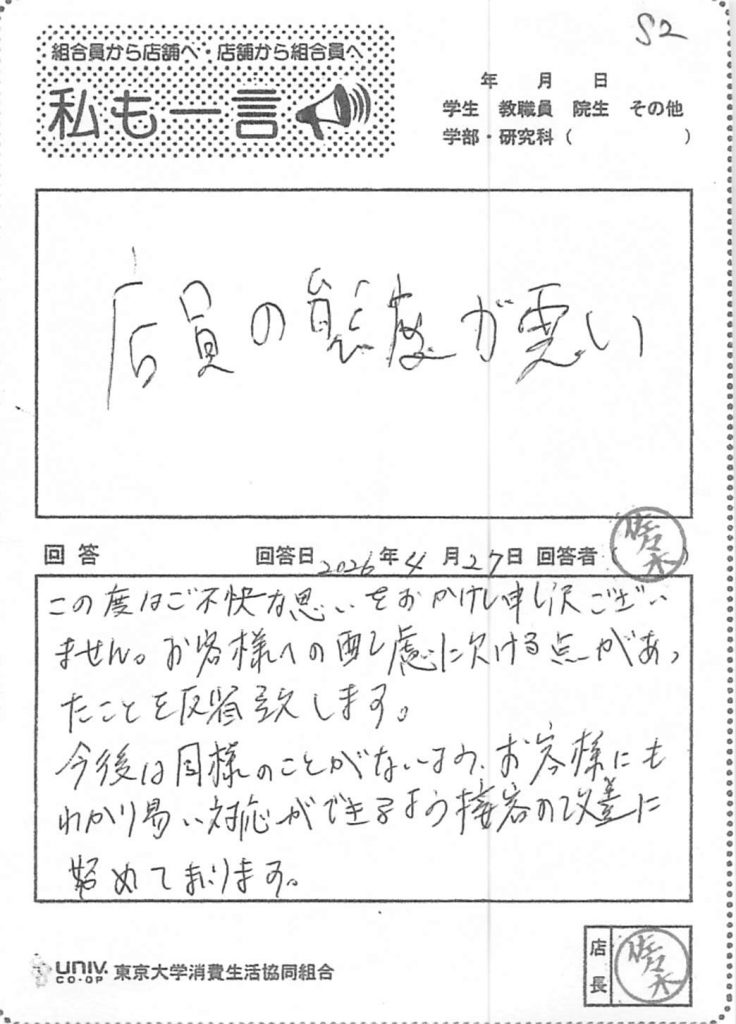 S2
組合員から店舗へ・店舗から組合員へ
私も一言
年 月 日
学生 教職員 院生 その他
学部・研究科（ ）
店員の態度が悪い
回答 回答日 2026年4月27日 回答者（佐々木）
この度はご不快な思いをおかけし申し訳ござい
ません。お客様への配慮に欠ける点があっ
たことを反省致します。
今後は同様のことがないよう、お客様にも
わかり易い対応ができるよう接客の改善に
努めております。
UNIV. CO-OP 東京大学消費生活協同組合
店長 佐々木